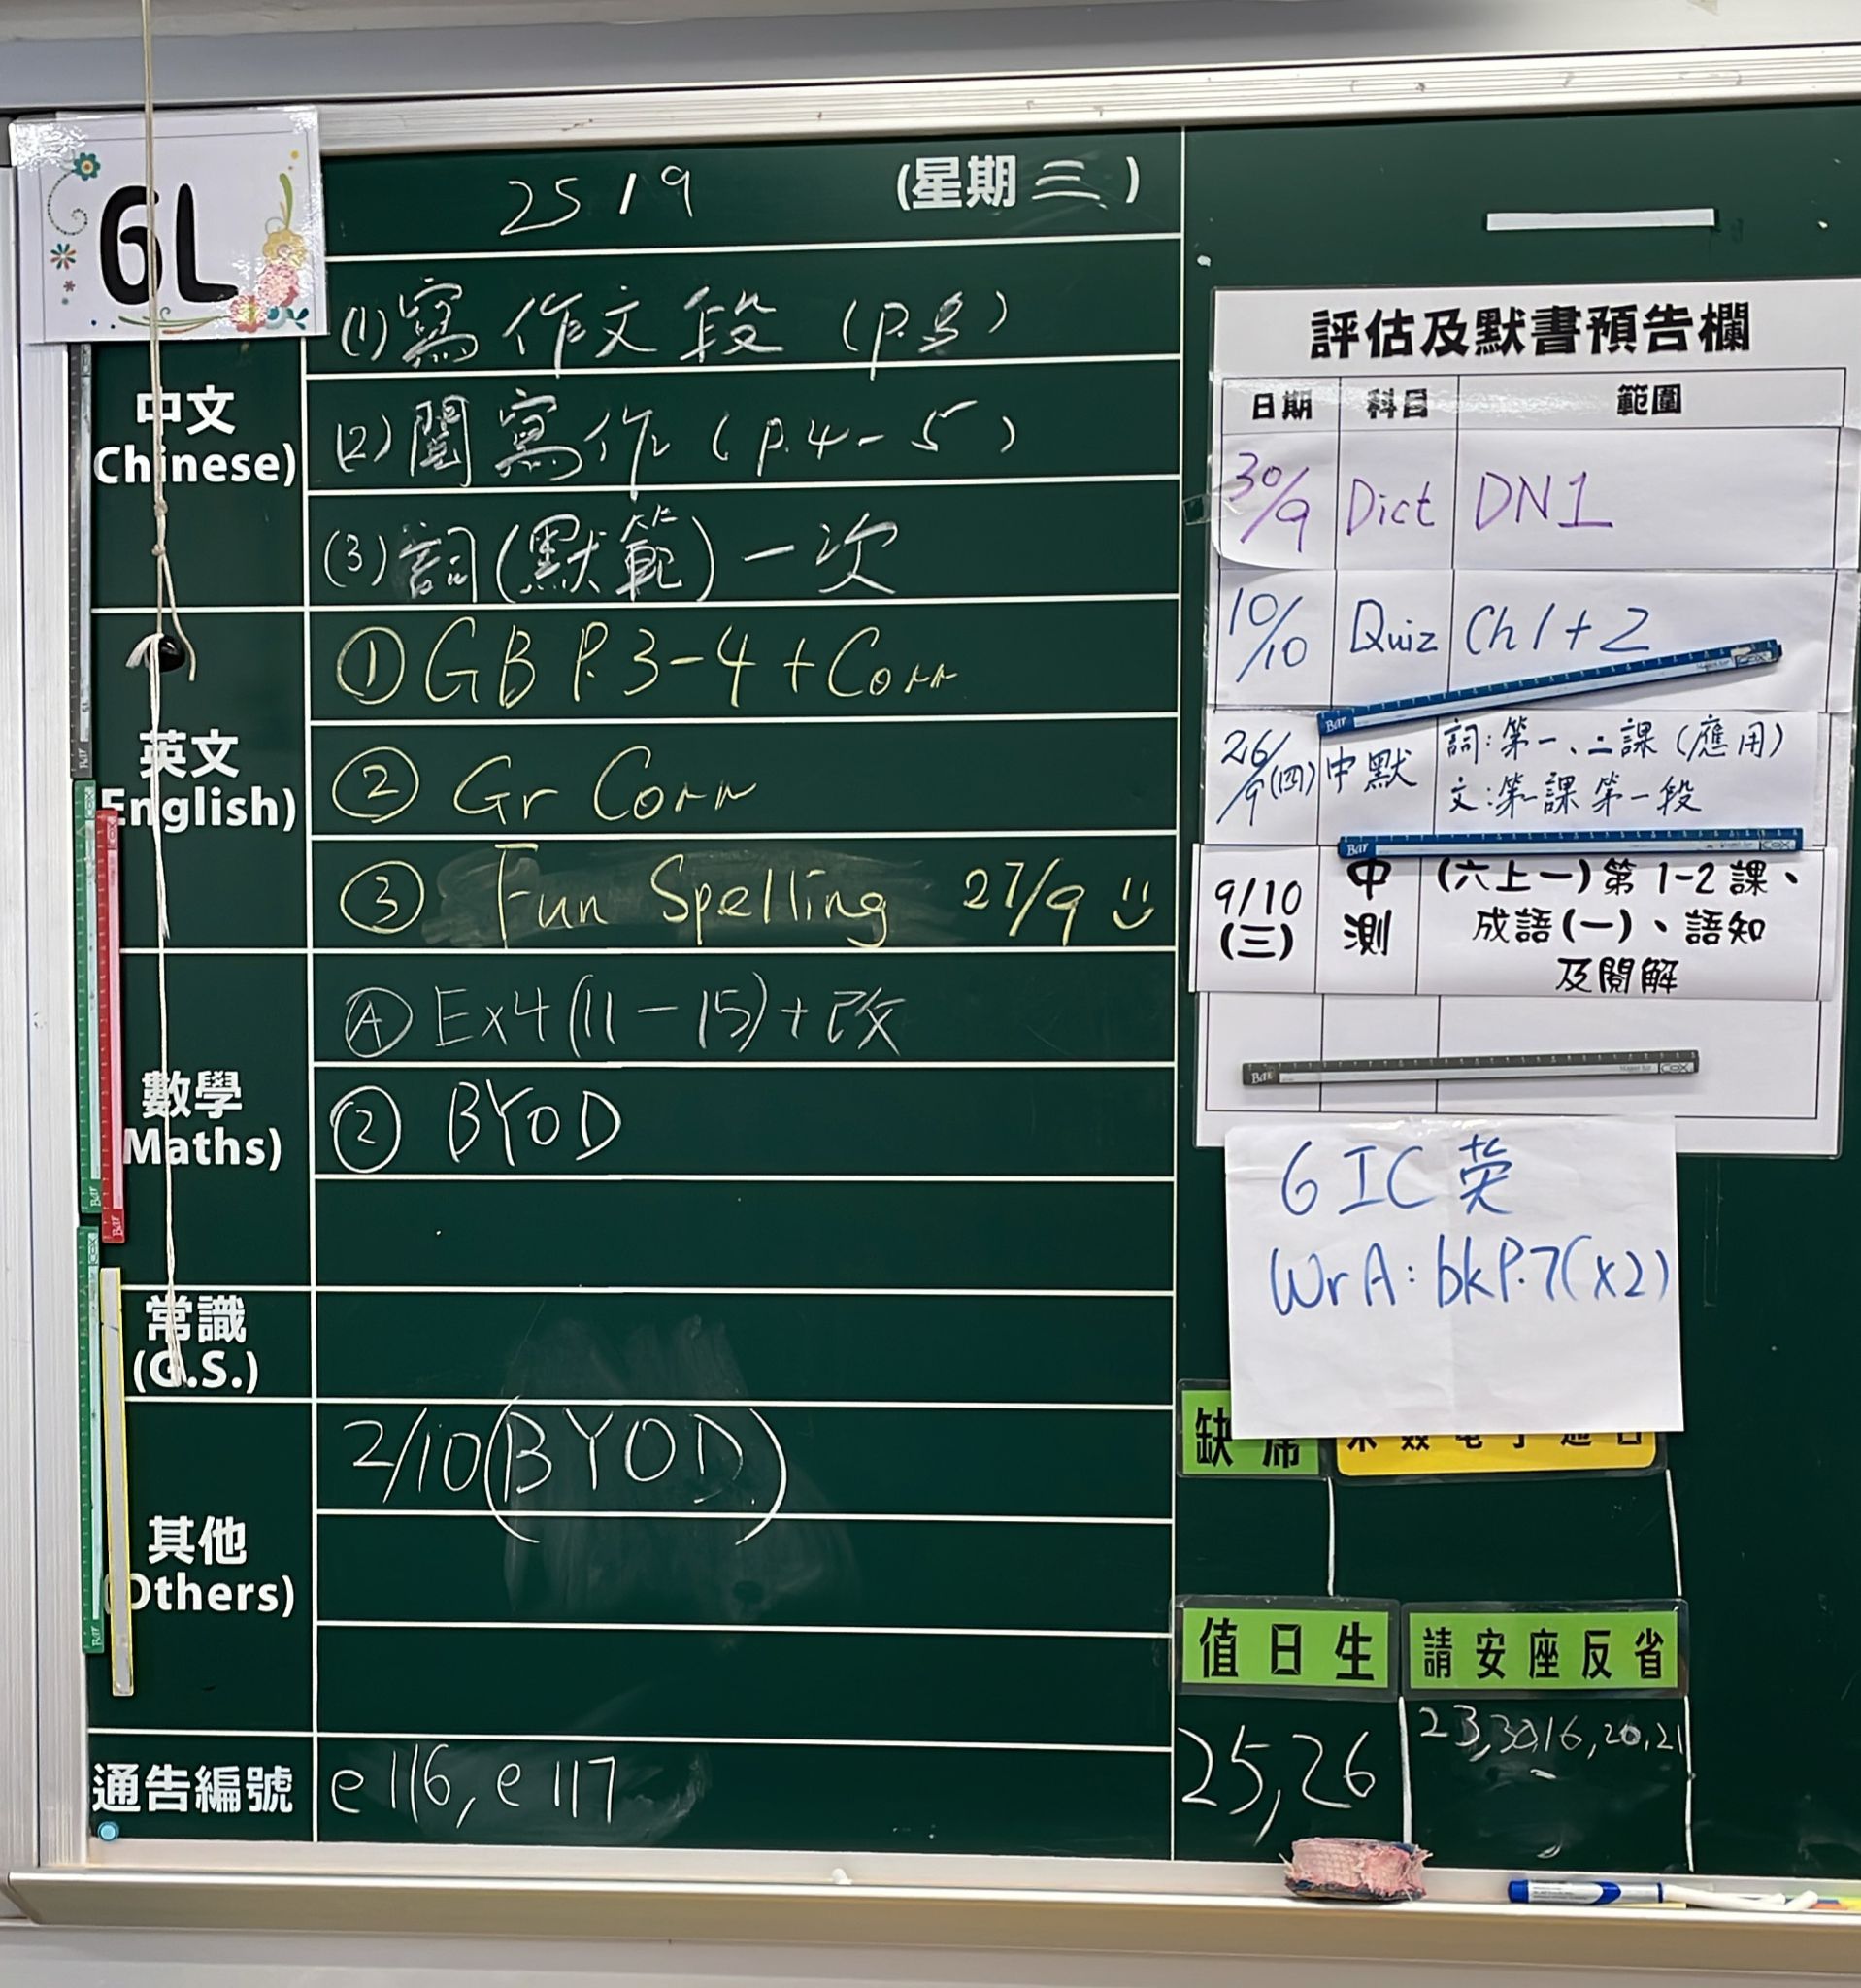 6L
25/9 (星期三)
中文
Chinese)
(1) 寫作文段 (P.3)
(2) 閱寫作 (P.4-5)
(3) 詞(默範)一次
英文
English)
① GB P.3-4 + Corr
② Gr Corr
③ Fun Spelling 27/9
數學
Maths)
Ex4(11-15)+改
② BYOD
常識
(G.S.)
其他
Others)
2/10(BYOD)
通告編號
e116, e117
評估及默書預告欄
日期 科目 範圍
30/9 Dict DN1
10/10 Quiz Ch 1+2
26/9(四) 中默 詞:第一、二課(應用)
文:第一課第一段
9/10 (三) 中測 (六上一)第1-2課、
成語(一)、語知
及閱解
6 IC 英
Wr A: bk P.7(x2)
缺席
值日生 請安座反省
25,26
23,30,16,20,21